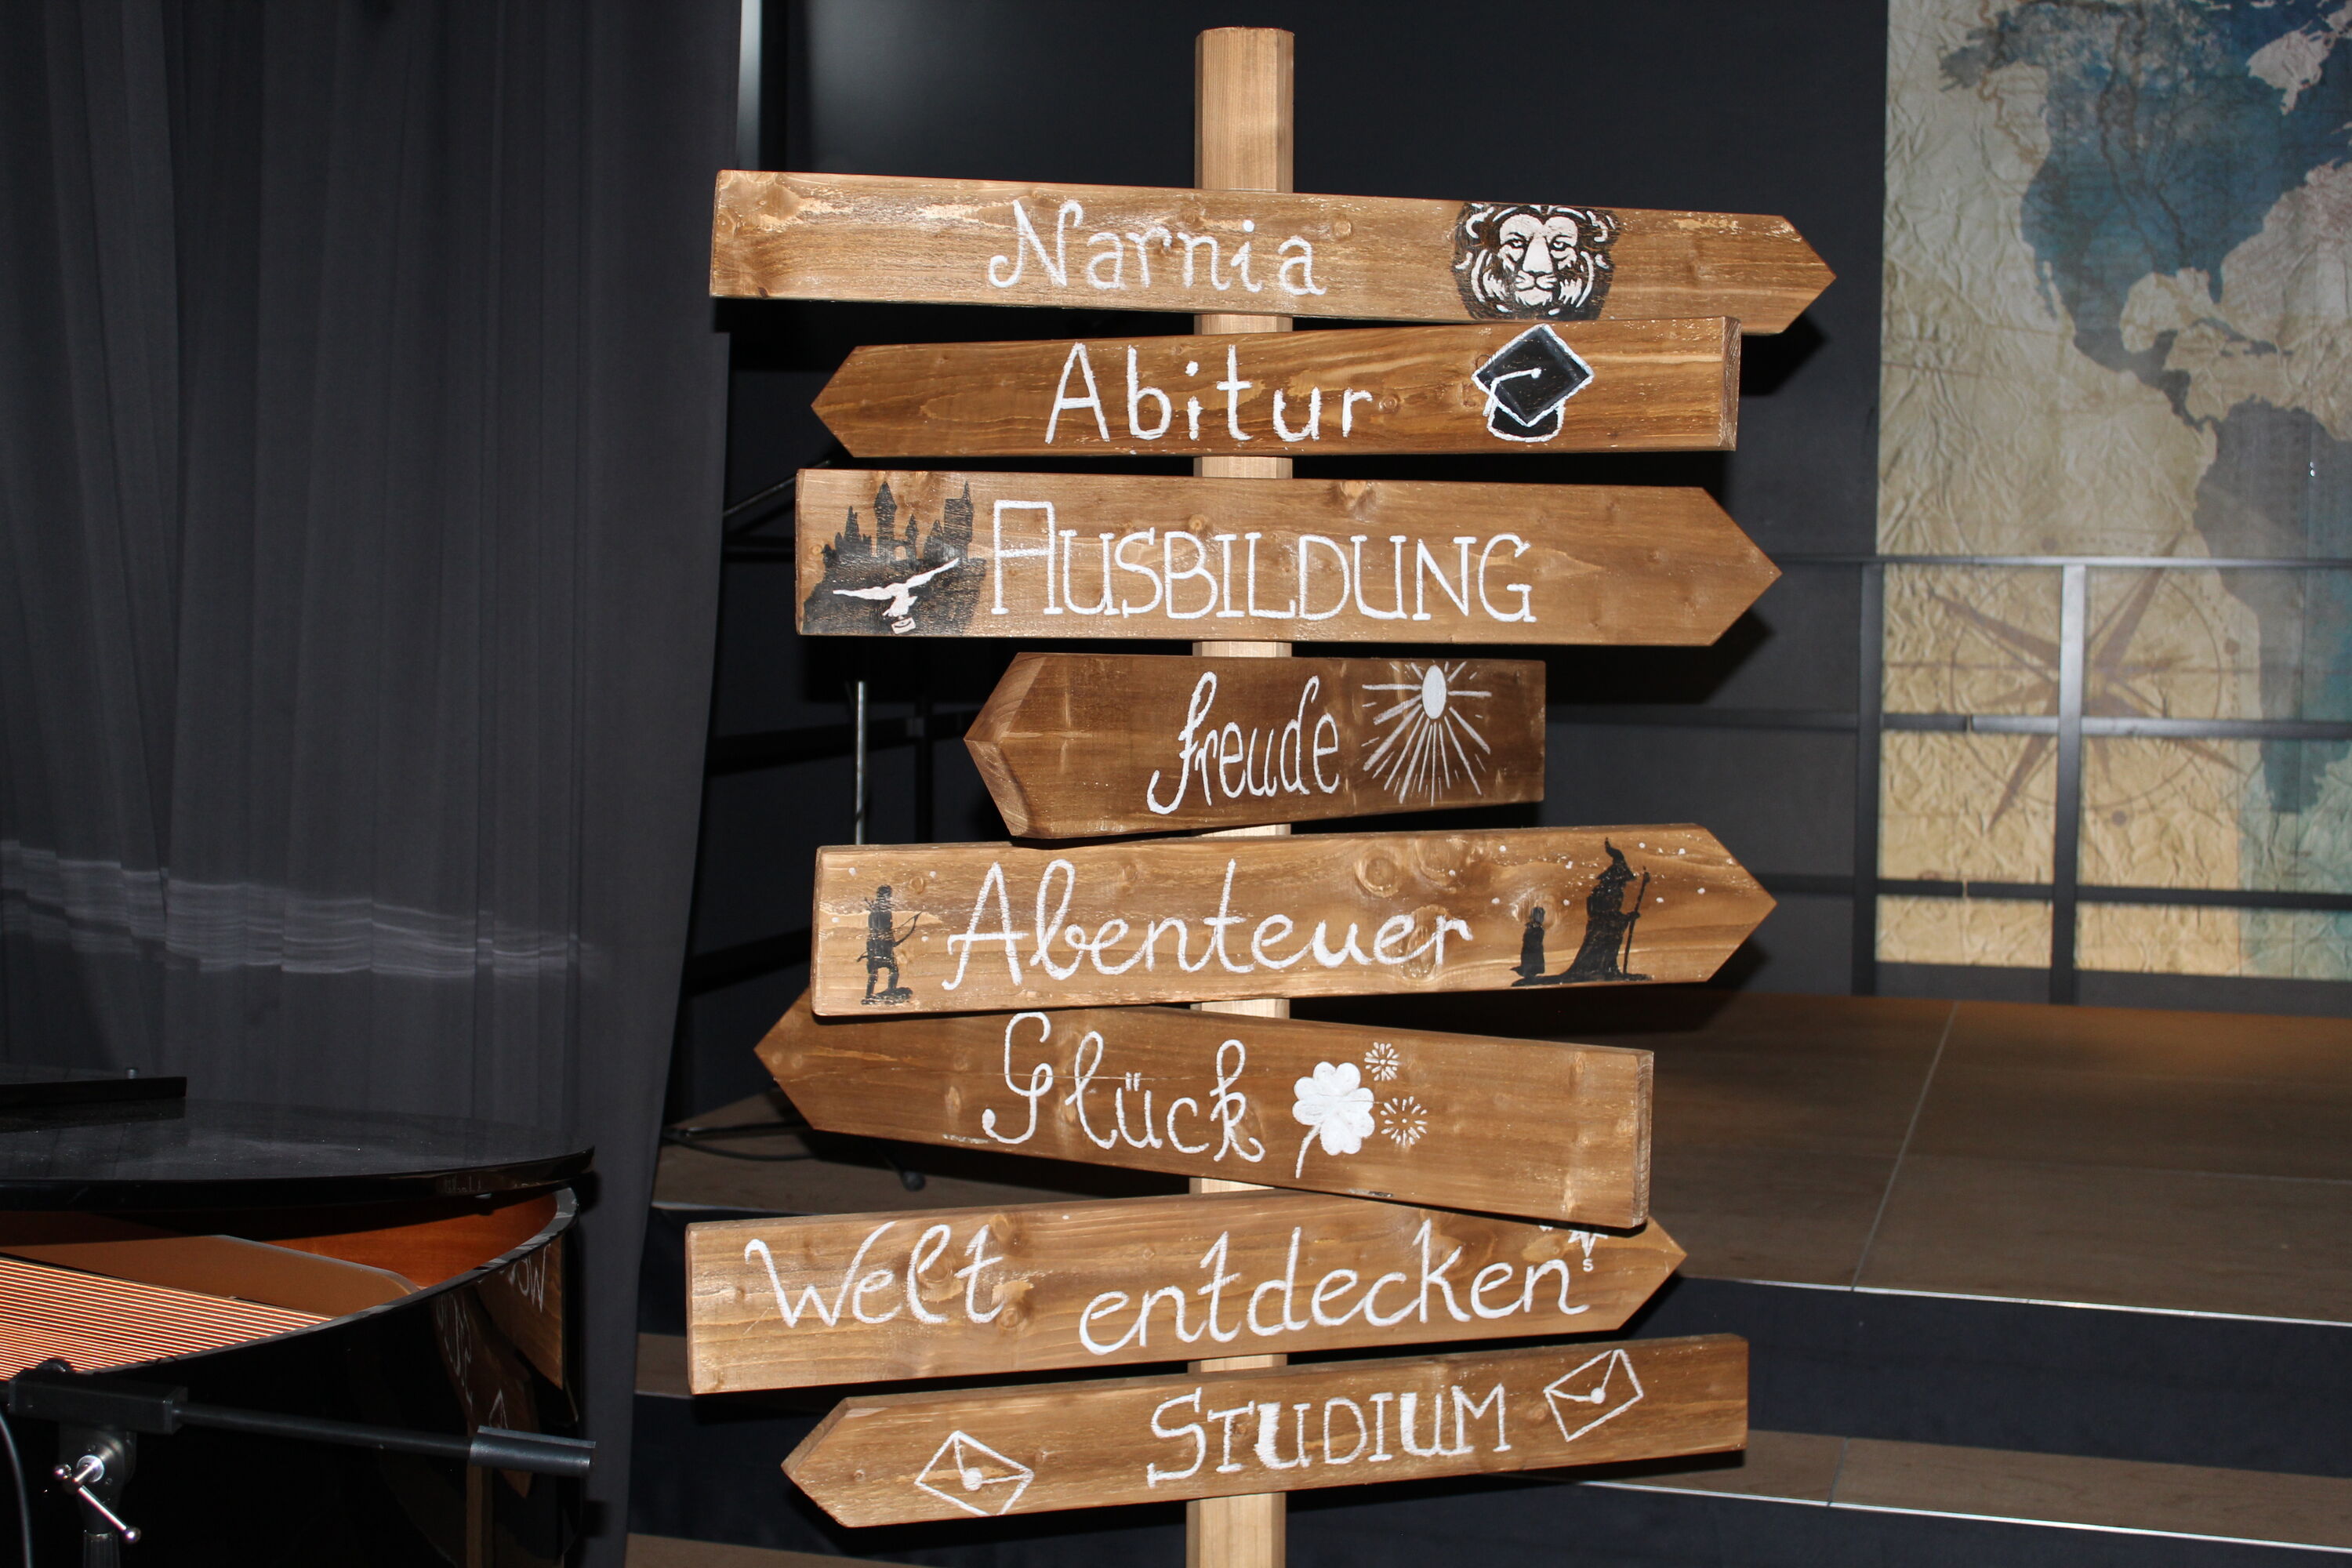 Narnia
Abitur
AUSBILDUNG
freude
Abenteuer
Glück
Welt entdecken
S
STUDIUM